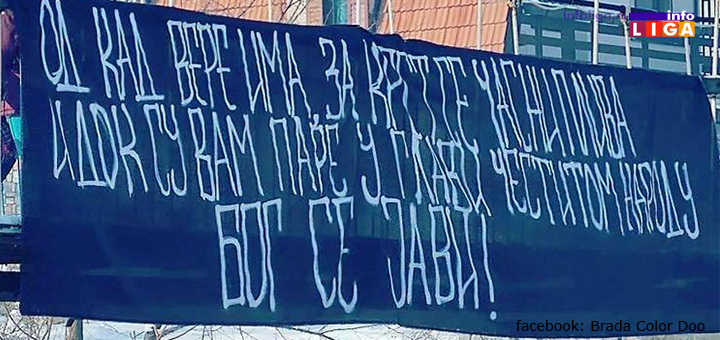 infoliga.rs
info
LIGA
ОД КАД ВЕРЕ ИМА, ЗА КРСТ СЕ ЧАСНИ ПЛИВА
И ДОК СУ ВАМ ПАРЕ У ГЛАВИ ЧЕСТИТОМ НАРОДУ
БОГ СЕ ЈАВИ!
facebook: Brada Color Doo